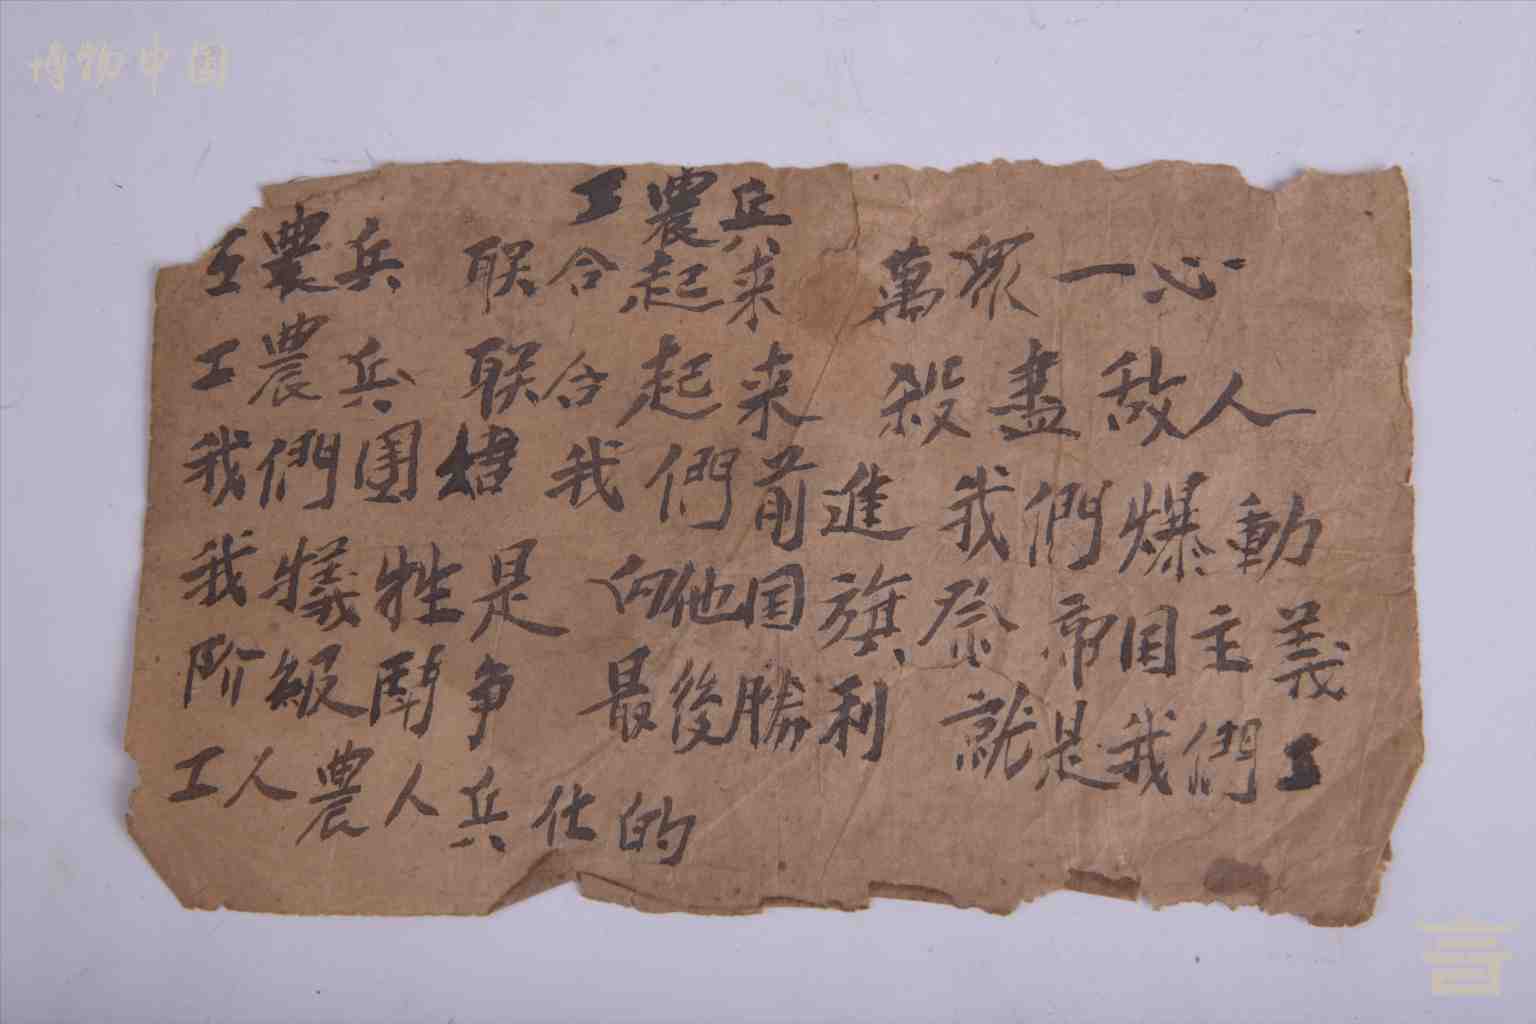 博物中国
工農兵
工農兵 联合起来 萬眾一心
工農兵 联合起来 殺盡敌人
我們團结 我們前進 我們爆動
我犠牲是 向他国旗 帝国主義
阶級鬪争 最後勝利 就是我們工
工人農人兵仕的
言